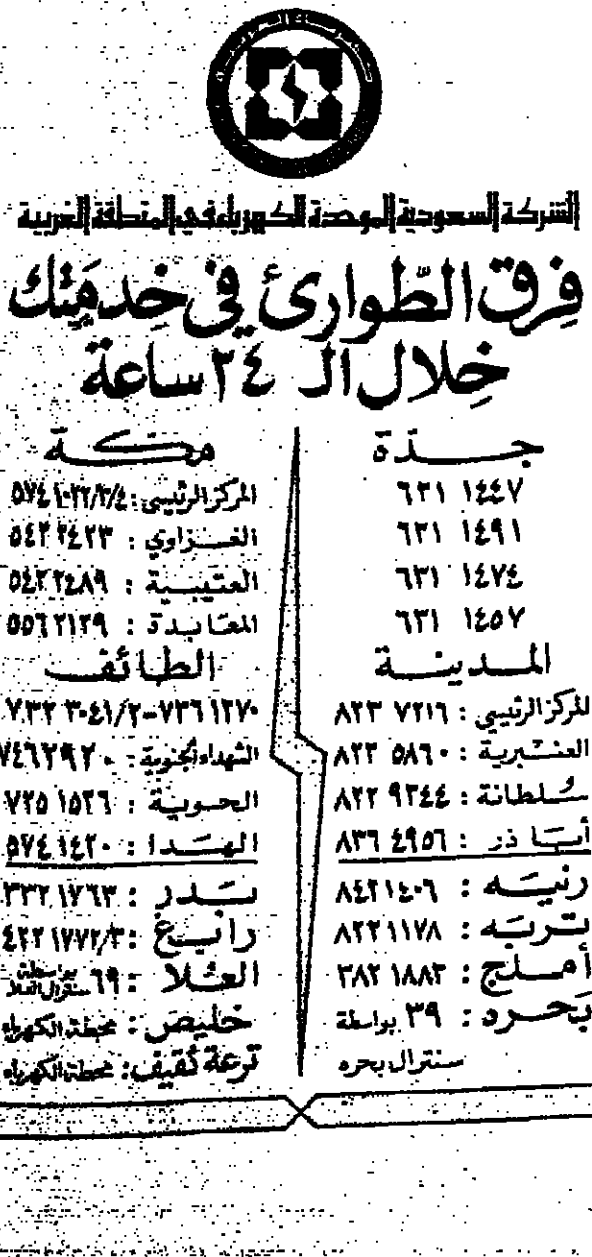 الشركة السعودية الموحدة للكهرباء في المنطقة الغربية
فِرق الطّوارئ في خِدمَتِك
خِلال الـ ٢٤ ساعة
جـدة
٦٣١ ١٤٤٧
٦٣١ ١٤٩١
٦٣١ ١٤٧٤
٦٣١ ١٤٥٧
المـدينـة
المركز الرئيسي : ٨٢٣ ٧٢١٦
العنـبرية : ٨٢٣ ٥٨٦٠
سـلطانة : ٨٢٢ ٩٣٤٤
أبـا ذر : ٨٣٦ ٤٩٥٦
رنيـه : ٨٤٢١٤٠٦
تـربـه : ٨٢٢١١٧٨
أمـلج : ٣٨٢ ١٨٨٣
بَحـره : ٣٩ بواسطة
سنترال بحره
مكـة
المركز الرئيسي : ٥٧٤١٠٢٢/٣/٤
الغـزاوي : ٥٤٢٢٤٢٣
العتيبـية : ٥٤٢٢٤٨٩
المعـابدة : ٥٥٦٢١٢٩
الطـائف
٧٣٦١٢٧٠-٧٣٢ ٣٠٤١/٢
الشهداء الجنوبية : ٧٤٦٢٩٢٠
الحـوية : ٧٢٥١٥٢٦
الهـدا : ٥٧٤١٤٢٠
بـدر : ٣٣٢١٧٦٣
رابـغ : ٤٢٢١٧٧٢/٣
العـلا : ٦٩ بواسطة سنترال العلا
خليص : محطة الكهرباء
ترعة ثقيف : محطة الكهرباء